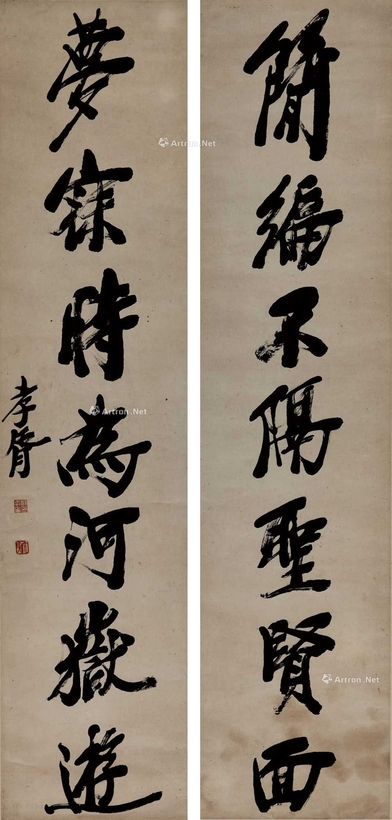 簡編不隔聖賢面
夢寐時為河嶽遊
孝胥
Artron.Net
Artron.Net
Artron.Net